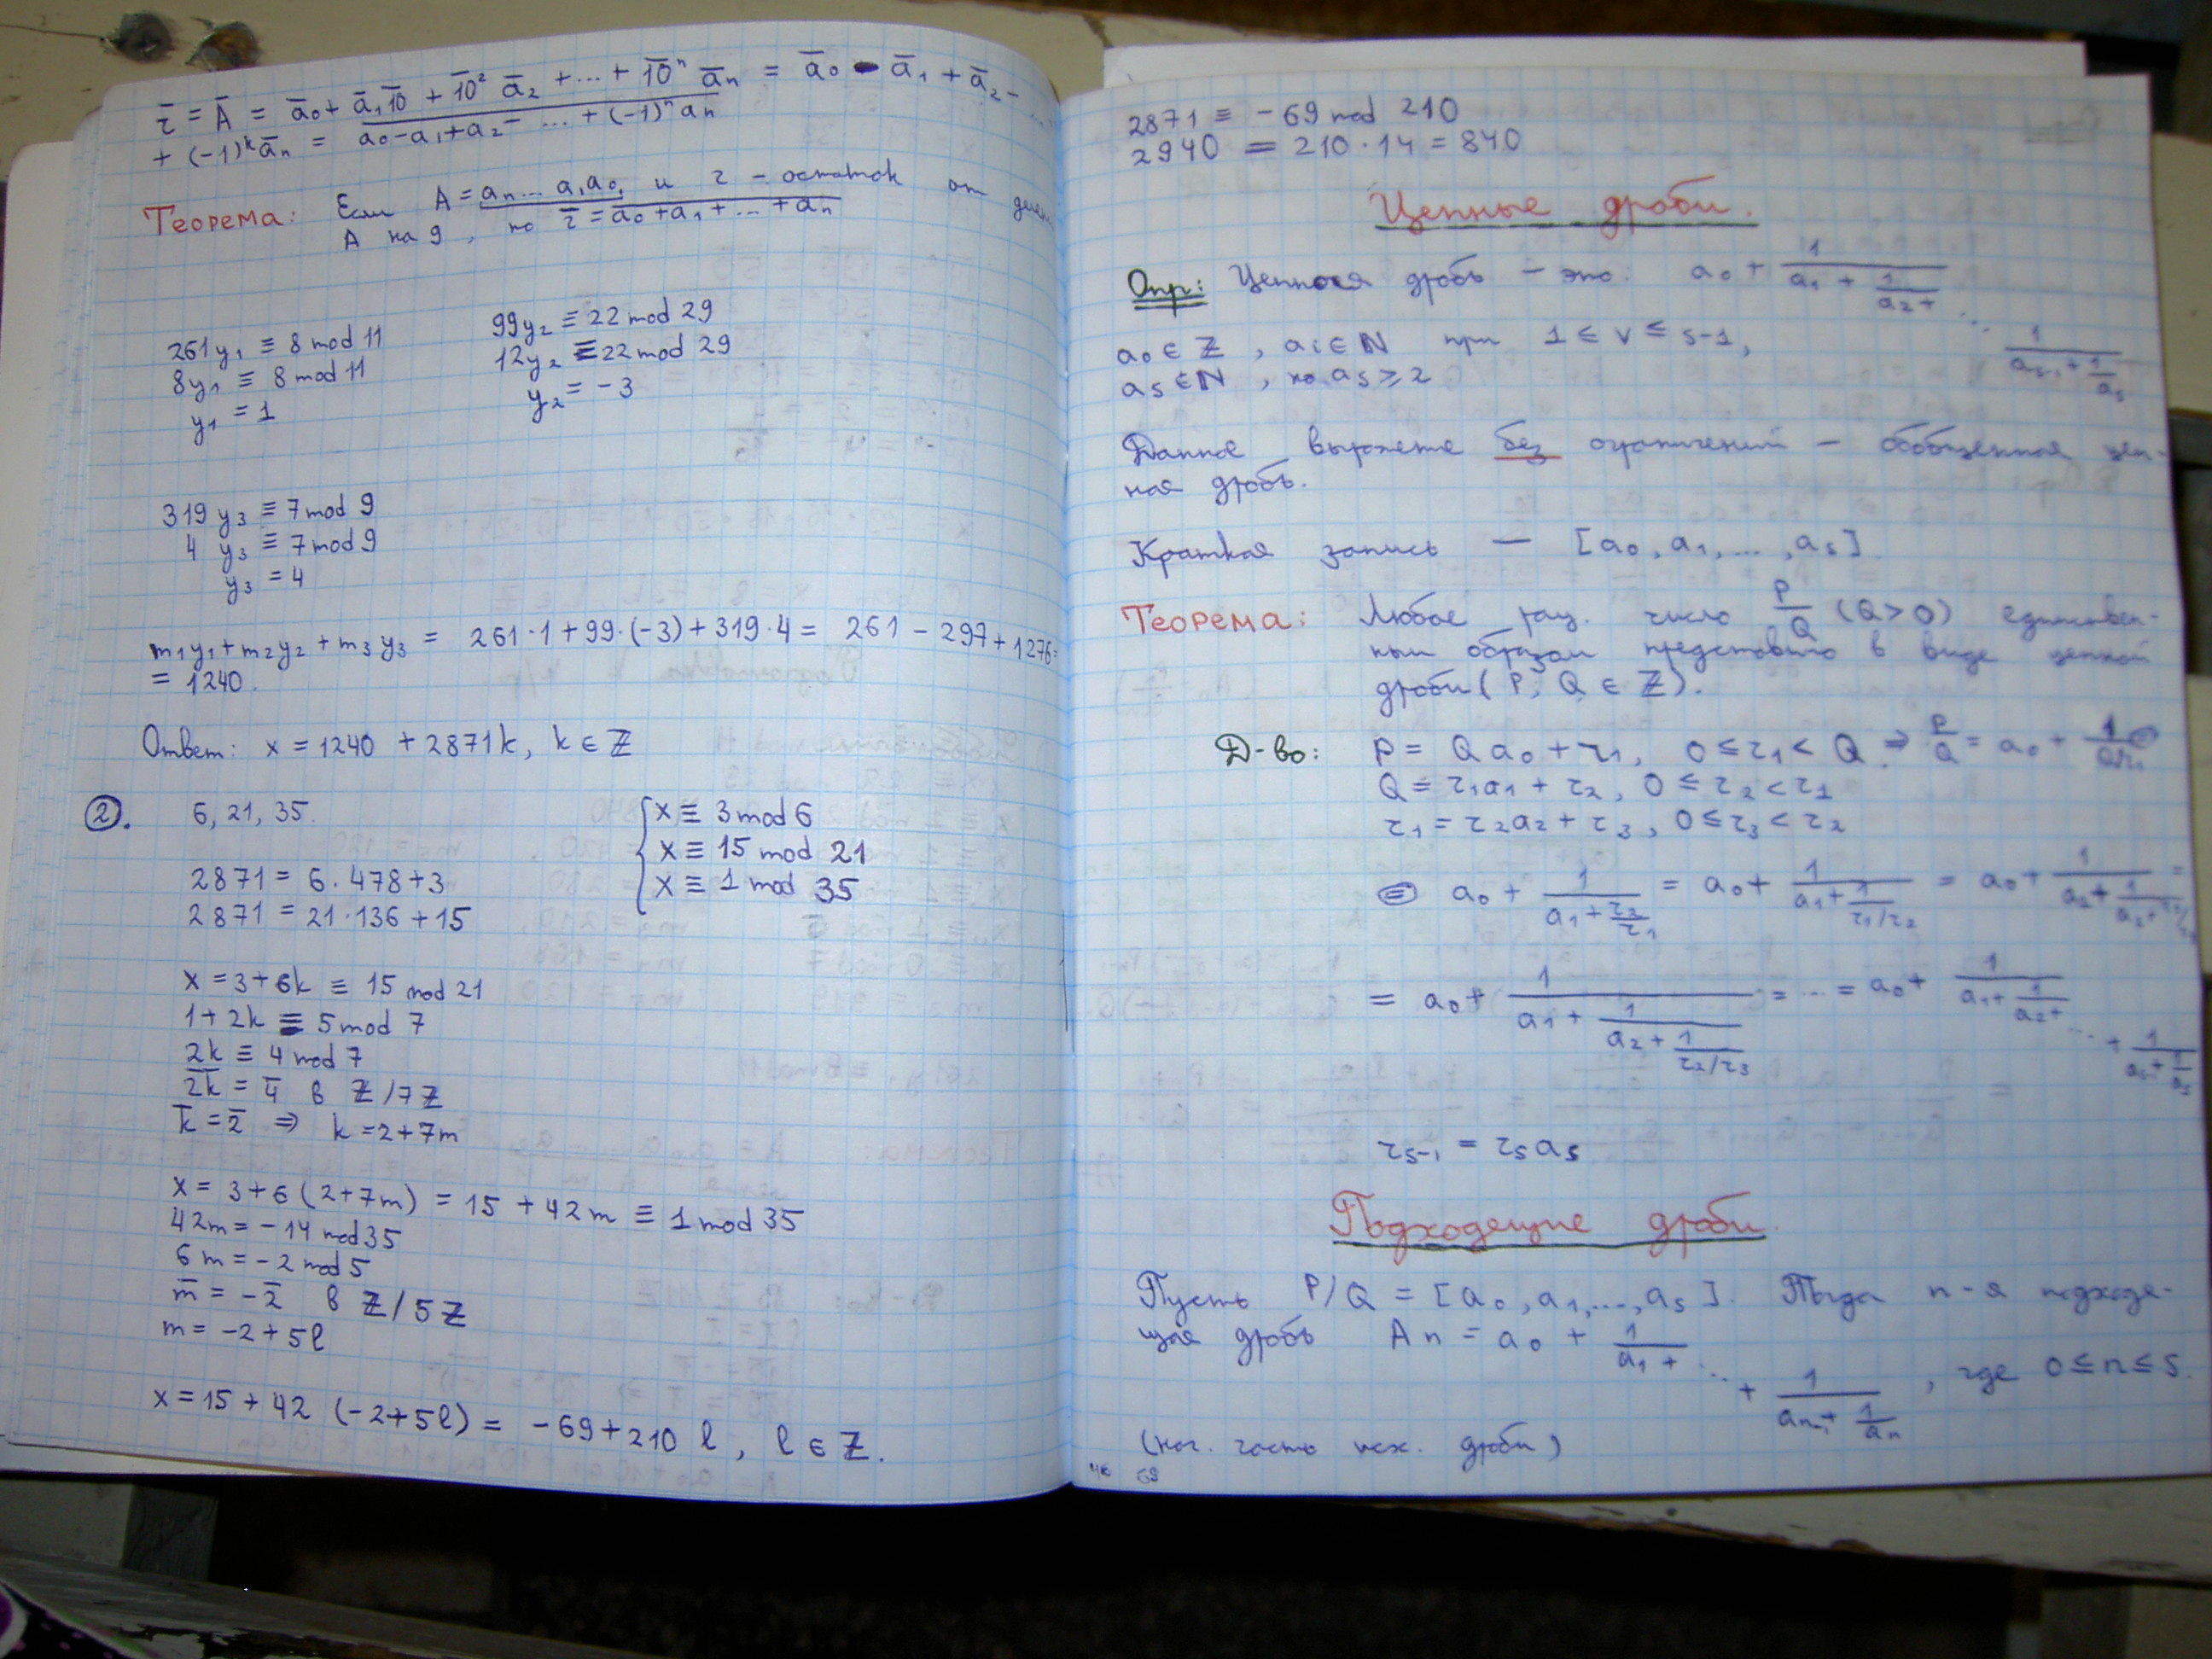 r̄ = Ā = ā₀ + ā₁10̄ + 10̄² ā₂ + ... + 10̄ⁿ āₙ = ā₀ - ā₁ + ā₂ - ...
+ (-1)ᵏ āₙ = a₀ - a₁ + a₂ - ... + (-1)ⁿ aₙ
Теорема: Если A = aₙ... a₁a₀, и r - остаток от делен
A на 9, то r̄ = a₀ + a₁ + ... + aₙ
261y₁ ≡ 8 mod 11
8y₁ ≡ 8 mod 11
y₁ = 1
99y₂ ≡ 22 mod 29
12y₂ ≡ 22 mod 29
y₂ = -3
319 y₃ ≡ 7 mod 9
4 y₃ ≡ 7 mod 9
y₃ = 4
m₁y₁ + m₂y₂ + m₃y₃ = 261·1 + 99·(-3) + 319·4 = 261 - 297 + 1276 =
= 1240.
Ответ: x = 1240 + 2871k, k ∈ ℤ
2. 6, 21, 35.
{ x ≡ 3 mod 6
x ≡ 15 mod 21
x ≡ 1 mod 35
2871 = 6·478 + 3
2871 = 21·136 + 15
x = 3 + 6k ≡ 15 mod 21
1 + 2k ≡ 5 mod 7
2k ≡ 4 mod 7
2̄k̄ = 4̄ в ℤ/7ℤ
k̄ = 2̄ ⇒ k = 2 + 7m
x = 3 + 6(2 + 7m) = 15 + 42m ≡ 1 mod 35
42m = -14 mod 35
6m = -2 mod 5
m̄ = -2̄ в ℤ/5ℤ
m = -2 + 5l
x = 15 + 42 (-2 + 5l) = -69 + 210 l, l ∈ ℤ.
2871 ≡ -69 mod 210
2940 = 210·14 = 840
Цепные дроби.
Опр: Цепная дробь - это: a₀ + 1/(a₁ + 1/(a₂ + ... 1/(aₛ₋₁ + 1/aₛ)))
a₀ ∈ ℤ, aᵢ ∈ ℕ при 1 ≤ v ≤ s-1,
aₛ ∈ ℕ, но aₛ ≥ 2
Данное выражение без ограничений - обобщенная цеп-
ная дробь.
Краткая запись — [a₀, a₁, ..., aₛ]
Теорема: Любое рац. число P/Q (Q > 0) единствен-
ным образом представимо в виде цепной
дроби (P, Q ∈ ℤ).
Д-во: P = Qa₀ + r₁, 0 ≤ r₁ < Q ⇒ P/Q = a₀ + 1/(Q/r₁) =
Q = r₁a₁ + r₂, 0 ≤ r₂ < r₁
r₁ = r₂a₂ + r₃, 0 ≤ r₃ < r₂
= a₀ + 1/(a₁ + r₂/r₁) = a₀ + 1/(a₁ + 1/(r₁/r₂)) = a₀ + 1/(a₁ + 1/(a₂ + r₃/r₂)) =
= a₀ + 1/(a₁ + 1/(a₂ + 1/(r₂/r₃))) = ... = a₀ + 1/(a₁ + 1/(a₂ + ... + 1/(aₛ₋₁ + 1/aₛ)))
rₛ₋₁ = rₛaₛ
Подходящие дроби.
Пусть P/Q = [a₀, a₁, ..., aₛ]. Тогда n-я подходя-
щая дробь Aₙ = a₀ + 1/(a₁ + ... + 1/(aₙ₋₁ + 1/aₙ)), где 0 ≤ n ≤ s.
(нач. часть исх. дроби)
69